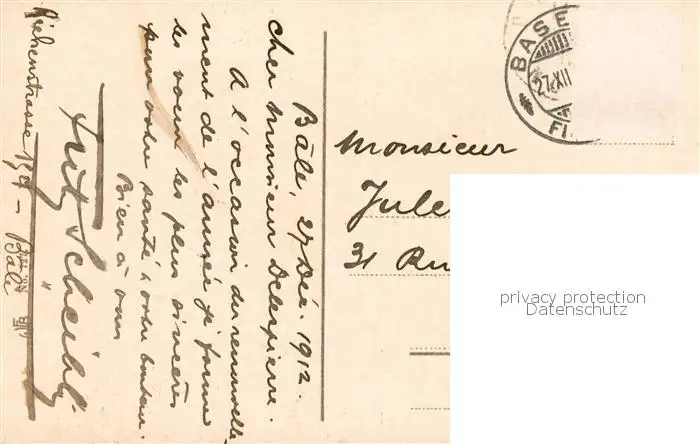 Bâle, 27 Déc. 1912.
Cher Monsieur Delespierre.
A l'occasion du renouvelle
ment de l'année je forme
les voeux les plus sincères
pour votre santé & votre bonheur.
Bien à vous
Fritz Scheibli
Riehenstrasse 157 – Bâle
Monsieur
Jule
31 Ru
BASE
27.XII
FI
privacy protection
Datenschutz